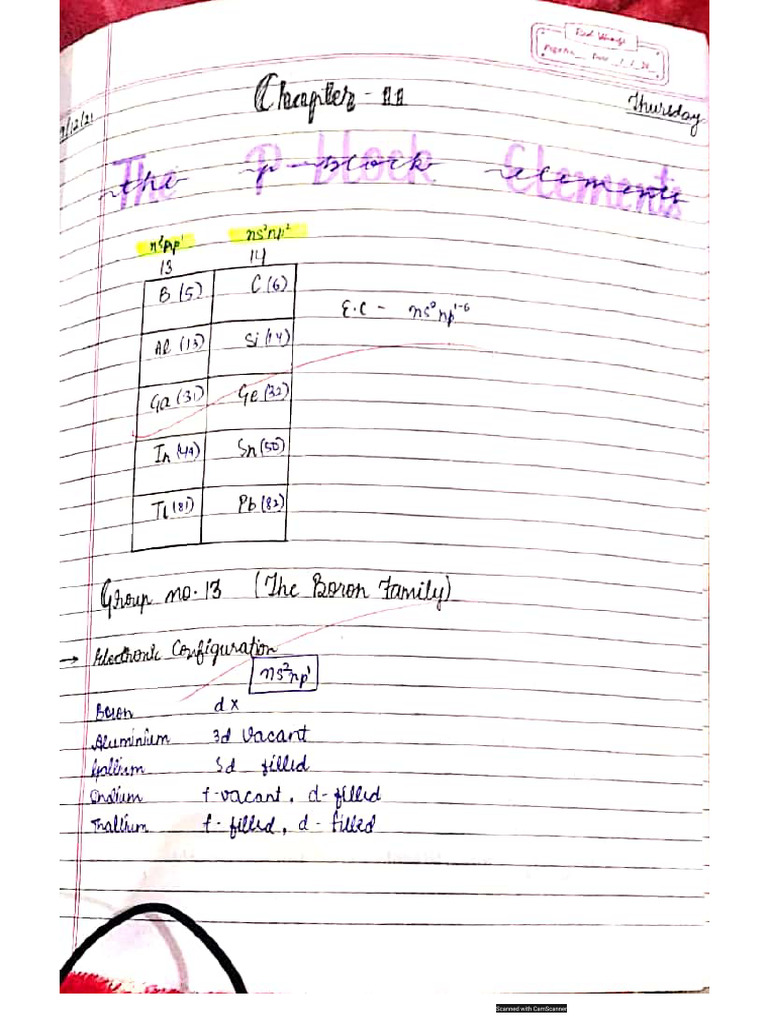 Chapter - 11
Thursday
9/12/21
The P-block Elements
ns²np¹ ns²np²
13 14
B (5) C (6)
E.C - ns²np¹⁻⁶
Al (13) Si (14)
Ga (31) Ge (32)
In (49) Sn (50)
Tl (81) Pb (82)
Group no. 13 (The Boron Family)
→ Electronic Configuration
ns²np¹
Boron d x
Aluminium 3d vacant
Gallium 3d filled
Indium f-vacant, d-filled
Thallium f-filled, d-filled
Scanned with CamScanner